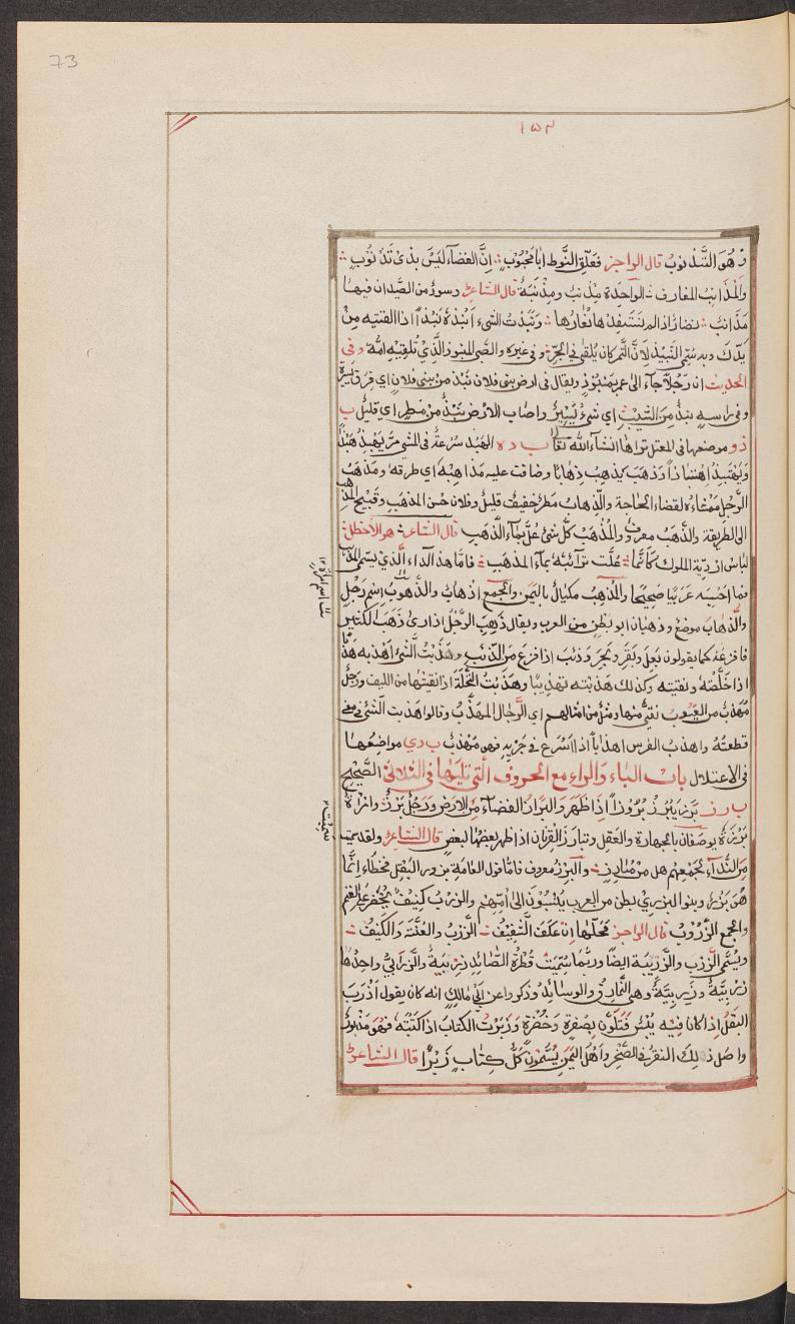 73
١٥٢
وهو التذنوب قال الراجز فعلق النوط ابا محبوب ان الغضاء ليس بذى تذنوب
والمذانب المغارف الواحدة مذنب ومذنبة قال الشاعر وسود من الصيدان فيها
مذانب نضار اذا لم نستفدها نعارها ونبذت الشىء انبذه نبذا اذا القيته من
يدك وبه سمى النبيذ لان التمر كان يلقى فى الجر وفى غيره والصبى المنبوذ الذى تلقيه امه وفى
الحديث ان رجلا جاء الى عمر بمنبوذ ويقال فى ارض بنى فلان نبذ من بنى فلان اى فرق يسيرة
وفى راسه نبذ من الشيب اى شىء يسير واصاب الارض نبذ من مطر اى قليل ب
ذ و موضعها فى المعتل تراها انشاء الله تعا ب ذ ه الهبذ سرعة فى المشى مر يهبذ هبذا
ويهتبذ اهتباذا وذهب يذهب ذهابا وضاقت عليه مذاهبه اى طرقه ومذهب
الرجل ممشاه لقضاء الحاجة والذهاب مطر خفيف قليل وفلان حسن المذهب وقبيح المذهب
الى الطريقة والذهب معروف والمذهب كل شىء عل بماء الذهب قال الشاعر هو الاخطل
لباس اردية الملوك كانما علت ترائبه بماء المذهب فاما هذا الداء الذى يسمى المذهب
فما احسبه عربيا صحيحا والذهب مكيال باليمن والجمع اذهاب والذهوب اسم رجل
والذهاب موضع وذهبان ابو بطن من العرب ويقال ذهب الرجل اذا رى ذهب الكثير
فافزعه كما يقولون بعل وبقر وبحر وذئب اذا فزع من الذئب وهذبت الشىء اهذبه هذبا
اذا خلصته ونقيته وكذلك هذبته تهذيبا وهذبت النخلة اذا نقيتها من الليف ورجل
مهذب من العيوب نقى منها ومثل من امثالهم اى الرجال المهذب وقالوا هذبت الشىء فى معنى
قطعته واهذب الفرس اهذابا اذا اسرع فى جريه فهو مهذب ب ذ ى مواضعها
فى الاعتلال باب الباء والراء مع الحروف التى تليها فى الثلاثى الصحيح
ب ر ز برز يبرز بروزا اذا ظهر والبراز الفضاء من الارض ورجل برز وامراة
برزة يوصفان بالجهارة والعقل وتبارز القرنان اذا ظهر بعضهما لبعض قال الشاعر ولقد
من النداء بجمعهم هل من مبارز والبزر معروف فاما قول العامة بزور البقل فخطاء انما
هو بزر وبنو البزرى بطن من العرب ينسبون الى امهم والزرب كنيف يحفر للغنم
والجمع الزروب قال الراجز الزرب والعنة والكنيف
ويسمى الزرب والزريبة ايضا وربما سميت قترة الصائد زريبة والزرابى واحدها
زربية وزربية وهى النمارق والوسائد وذكروا عن ابى مالك انه كان يقول ازرب
البقل اذا كان فيه يبس فتلون بصفرة وخضرة وزبرت الكتاب اذا كتبته فهو مزبور
واصل ذلك النقر فى الصخر واهل اليمن يسمون كل كتاب زبرا قال الشاعر